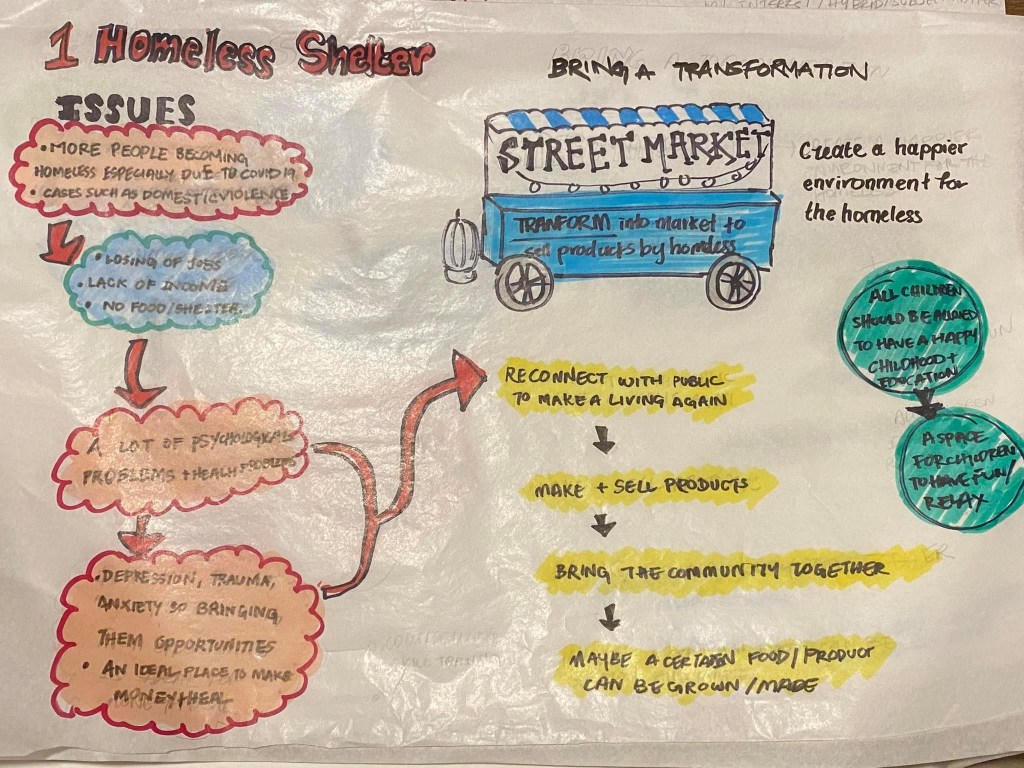 1 Homeless Shelter
ISSUES
• MORE PEOPLE BECOMING
HOMELESS ESPECIALLY DUE TO COVID 19
• CASES SUCH AS DOMESTIC VIOLENCE
• LOSING OF JOBS
• LACK OF INCOME
• NO FOOD/SHELTER.
A LOT OF PSYCHOLOGICAL
PROBLEMS + HEALTH PROBLEMS
• DEPRESSION, TRAUMA,
ANXIETY SO BRINGING
THEM OPPORTUNITIES
• AN IDEAL PLACE TO MAKE
MONEY + HEAL
BRING A TRANSFORMATION
STREET MARKET
TRANFORM into market to
sell products by homless
Create a happier
environment for
the homeless
RECONNECT WITH PUBLIC
TO MAKE A LIVING AGAIN
MAKE + SELL PRODUCTS
BRING THE COMMUNITY TOGETHER
MAYBE A CERTAIN FOOD/PRODUCT
CAN BE GROWN/MADE
ALL CHILDREN
SHOULD BE ALLOWED
TO HAVE A HAPPY
CHILDHOOD +
EDUCATION
A SPACE
FOR CHILDREN
TO HAVE FUN/
RELAX